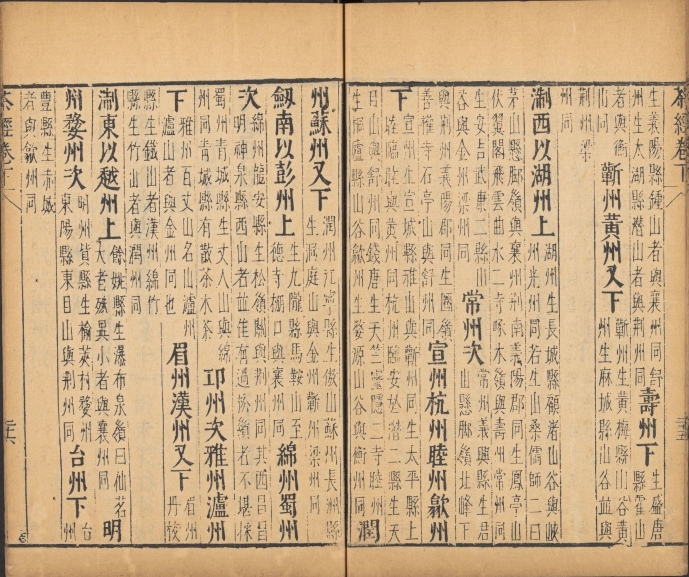 茶經卷下
生義陽縣鍾山者與襄州同舒
州生太湖縣潛山者與荊州同
壽州下
生盛唐
縣霍山
者與衡
山同
蘄州黃州又下
蘄州生黃梅縣山谷黃
州生麻城縣山谷並與
荊州梁
州同
淛西以湖州上
湖州生長城縣顧渚山谷與峽
州光州同若生山桑儒師二曰
茅山懸脚嶺與襄州荊南義陽郡同生鳳亭山
伏翼閣飛雲曲水二寺啄木嶺與壽州常州同
生安吉武康二縣山
谷與金州梁州同
常州次
常州義興縣生君
山懸脚嶺北峰下
與荊州義陽郡同生圈嶺
善權寺石亭山與舒州同
宣州杭州睦州歙州
下
宣州生宣城縣雅山與蘄州同生太平縣上
睦臨睦與黃州同杭州臨安於潛二縣生天
目山與舒州同錢唐生天竺靈隱二寺睦州
生桐廬縣山谷歙州生婺源山谷與衡州同
潤
州蘇州又下
潤州江寧縣生傲山蘇州長洲縣
生洞庭山與金州蘄州梁州同
劒南以彭州上
生九隴縣馬鞍山至
德寺棚口與襄州同
綿州蜀州
次
綿州龍安縣生松嶺關與荊州同其西昌昌
明神泉縣西山者並佳有過松嶺者不堪採
蜀州青城縣生丈人山與綿
州同青城縣有散茶木茶
邛州次雅州瀘州
下
雅州百丈山名山瀘州
瀘山者與金州同也
眉州漢州又下
眉州
丹校
縣生鐵山者漢州綿竹
縣生竹山者與潤州同
淛東以越州上
餘姚縣生瀑布泉嶺曰仙茗
大者殊異小者與襄州同
明
州婺州次
明州貨縣生榆莢村婺州
東陽縣東目山與荊州同
台州下
台
州
豐縣生赤城
者與歙州同
茶經卷下